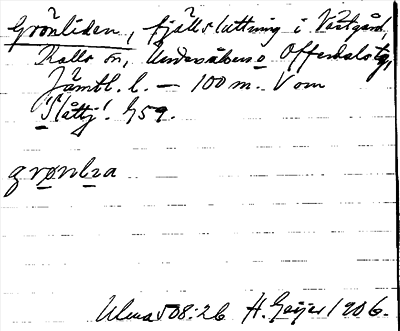 Grönliden, fjällsluttning i Västgård,
Kalls sn, Undersåkers o Offerdals tg,
Jämtl. l. — 100 m. V om
Slåttj! G59.
grønlıa
Ulma 508:26 H. Geijer 1906.